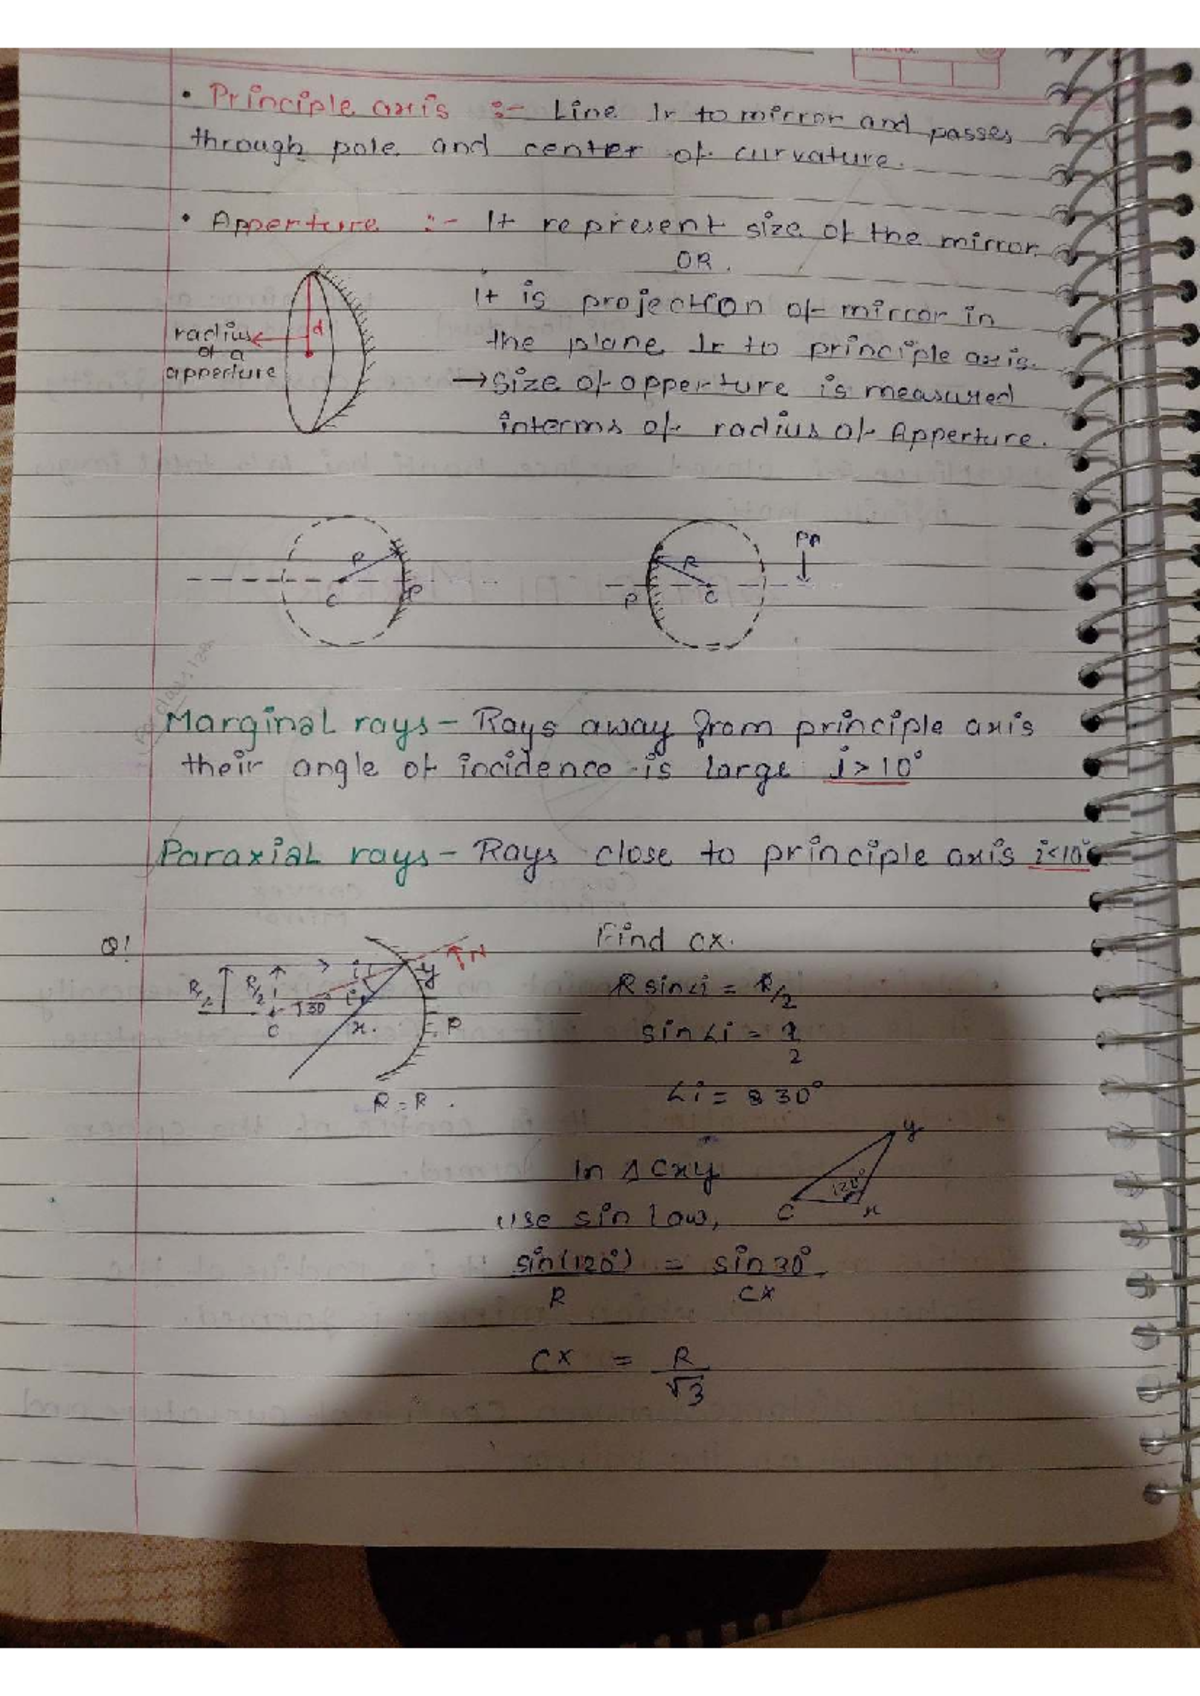 • Principle axis :- Line ⊥r to mirror and passes
through pole and center of curvature.
• Apperture :- It represent size of the mirror.
OR.
It is projection of mirror in
the plane ⊥r to principle axis.
→ Size of apperture is measured
interms of radius of Apperture.
d
radius
of a
apperture
R
C
P
R
P
C
PA
Marginal rays - Rays away from principle axis
their angle of incidence is large i > 10°
Paraxial rays - Rays close to principle axis i<10°
Q!
R/2
R/2
i
i
30°
C
x.
y
N
P
R = R.
Find cx.
R sin∠i = R/2
sin∠i = 1/2
∠i = 30°
In Δ Cxy
Use sin law,
y
120°
C
x
sin(120°)/R = sin30°/CX
CX = R/√3